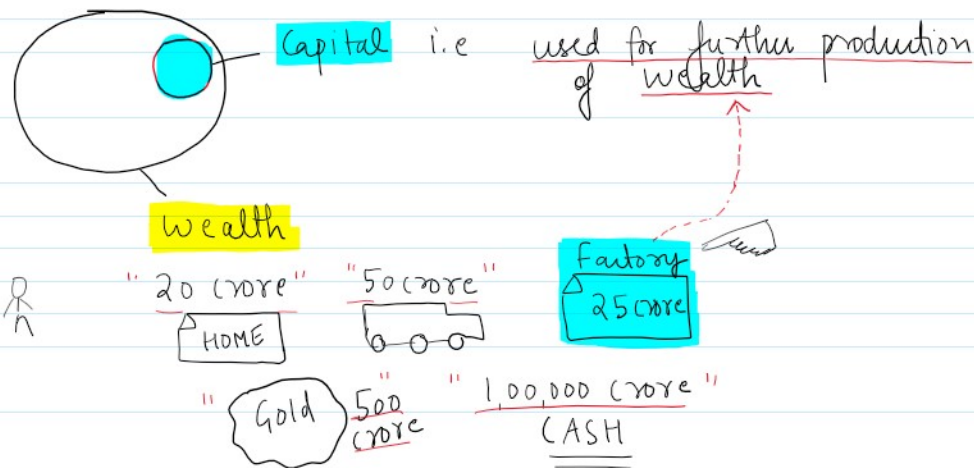 Capital i.e used for further production
of wealth
Wealth
Factory
"20 crore" "50 crore" 25 crore
HOME
Gold "500 crore" "1,00,000 crore"
CASH